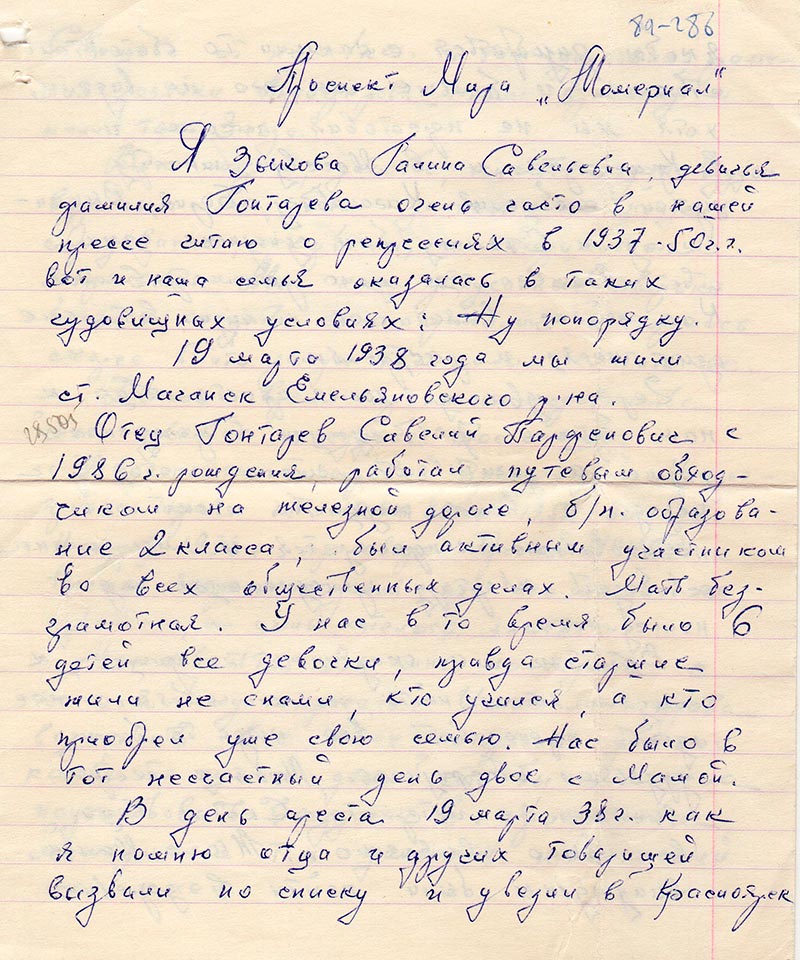 89-286
Проспект Мира „Мемериал"
Я Зыкова Галина Савельевна, девичья
фамилия Гонтарева очень часто в нашей
прессе читаю о репрессиях в 1937-50г.г.
вот и наша семья оказалась в таких
чудовищных условиях: Ну попорядку.
19 марта 1938 года мы жили
ст. Маганск Емельяновского р-на.
28505
Отец Гонтарев Савелий Парфенович с
1986 г. рождения, работал путевым обход-
чиком на железной дороге, б/п. образова-
ние 2 класса, был активным участником
во всех общественных делах. Мать без-
грамотная. У нас в то время было 6
детей все девочки, правда старшие
жили не снами, кто учился, а кто
приобрел уже свою семью. Нас было в
тот несчастный день двое с Мамой.
В день ареста 19 марта 38г. как
я помню отца и других товарищей
вызвали по списку и увезли в Красноярск